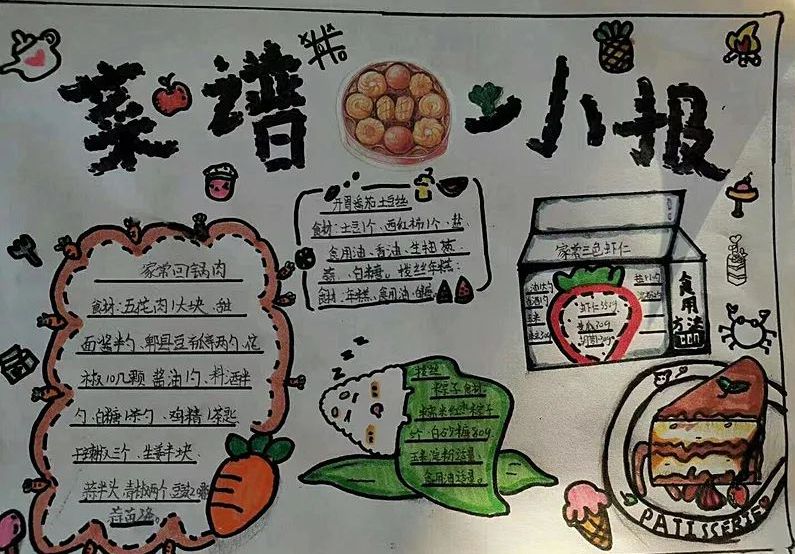 菜谱小报
家常回锅肉
食材:五花肉1大块、甜
面酱半勺、郫县豆瓣酱两勺、花
椒10几颗 酱油1勺、料酒半
勺、白糖1茶勺、鸡精1茶匙
干辣椒三个、生姜半块、
蒜半头、青椒两个、豆豉2
蒜苗
开胃番茄土豆丝
食材:土豆1个、西红柿1个、盐、
食用油、香油、生抽
蒜、白糖。拔丝年糕:
食材:年糕、食用油、白糖
家常三色虾仁
虾仁350g
食用
方法
拔丝
粽子食材
糯米红枣粽子
5个、白砂糖80g
玉米淀粉适量、
食用油适量。
PATISSERIE